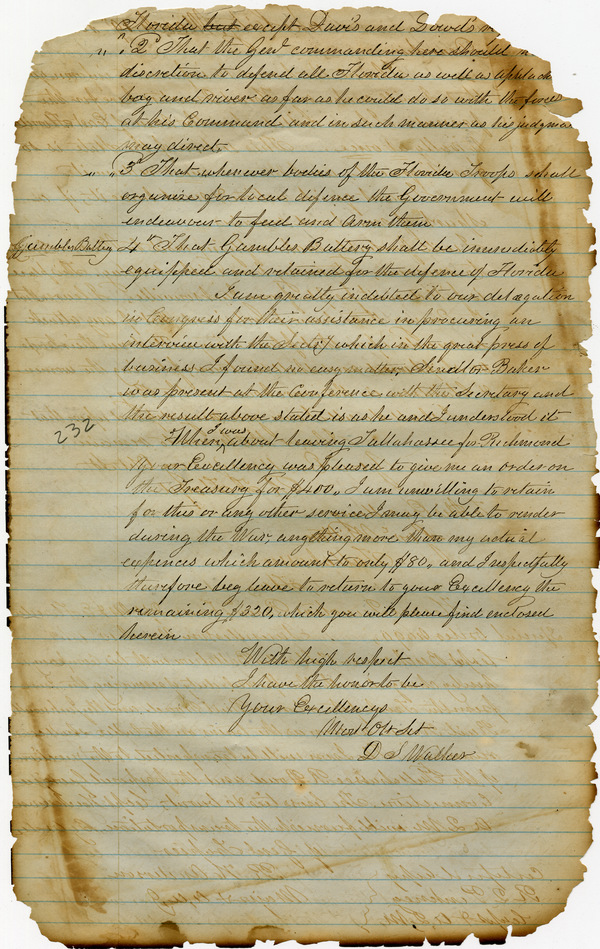 Florida but except Davis and Dowd's
" " 2d That the Genl commanding here should
discretion to defend all Florida as well as Applach
bay and river as far as he could do so with the force
at his Command and in such manner as his judgme
may direct
" " 3d That whenever bodies of the Florida Troops shall
organize for local difence the Government will
endeavour to feed and Arm them
Gambles Battery 4th That Gambles Battery shall be immediately
equipped and retained for the defence of Florida
I am greatly indebted to our delegation
in Congress for their assistance in procuring an
interview with the Secty which in the great press of
business I found no easy matter Senator Baker
was present at the Conference with the Secretary and
the result above stated is as he and I understood it
232
When I was about leaving Tallahassee for Richmond
your Excellency was pleased to give me an order on
the Treasury for $400. I am unwilling to retain
for this or any other service I may be able to render
during the War anything more than my actual
expences which amount to only $80. and I respectfully
therefore beg leave to return to your Excellency the
remaining $320, which you will please find enclosed
herein
With high respect
I have the honor to be
Your Excellencys
Most Obt Svt
D S Walker